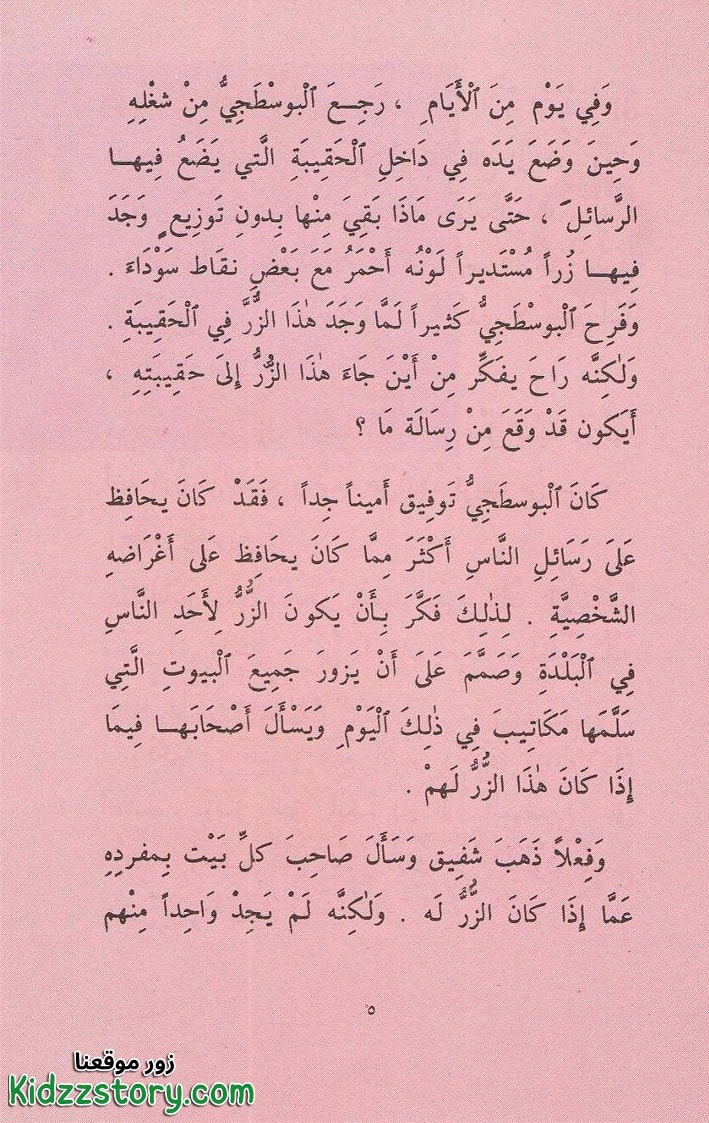 وَفِي يَوْم مِنَ ٱلْأَيَامِ ، رَجِعَ ٱلْبوسْطَجِيُّ مِنْ شغْلِهِ
وَحِينَ وَضَعَ يَدَه فِي دَاخِلِ ٱلْحَقِيبَةِ الَّتي يَضَعُ فِيهـا
الرَّسائِلَ ، حَتَّى يَرَى مَاذَا بَقِيَ مِنْها بِدونِ تَوْزِيعٍ وَجَدَ
فِيهـا زُراً مُسْتَديراً لَوْنُه أَحْمَرُ مَعَ بَعْضِ نقَاط سَوْدَاءَ .
وَفَرِحَ ٱلْبوسْطَجِيُّ كَثيراً لَمَّا وَجَدَ هٰذَا الزُّرَّ فِي ٱلْحَقِيبَةِ .
وَلٰكِنَّه رَاحَ يفَكِّر مِنْ أَيْنَ جَاءَ هٰذَا الزُّرُّ إِلىَ حَقِيبَتِهِ ،
أَيَكون قَدْ وَقَعَ مِنْ رِسَالَة مَا ؟
كَانَ ٱلْبوسطَجِيُّ تَوفِيق أَميناً جِداً ، فَقَدْ كَانَ يحَافِظ
عَلىَ رَسَائِلِ النَّاسِ أَكْثَرَ مِمَّا كَانَ يحَافِظ عَلىَ أَغْرَاضهِ
الشَّخْصِيَّةِ . لِذٰلِكَ فَكَّرَ بِأَنْ يَكونَ الزُّرُّ لِأَحَدِ النَّاسِ
فِي ٱلْبَلْدَةِ وَصَمَّمَ عَلىَ أَنْ يَزورَ جَمِيعَ ٱلْبيوتِ الَّتِي
سَلَّمَها مَكَاتِيبَ فِي ذٰلِكَ ٱلْيَوْمِ وَيَسْأَلَ أَصْحَابَهـا فِيمَا
إِذَا كَانَ هٰذَا الزُّرُّ لَهمْ .
وَفِعْلاً ذَهَبَ شَفِيق وَسَأَلَ صَاحِبَ كلِّ بَيْت بِمفردِهِ
عَمَّا إِذَا كَانَ الزُّرُّ لَه . وَلٰكِنَّه لَمْ يَجِدْ وَاحِداً مِنْهم
٥
زور موقعنا
Kidzzstory.com